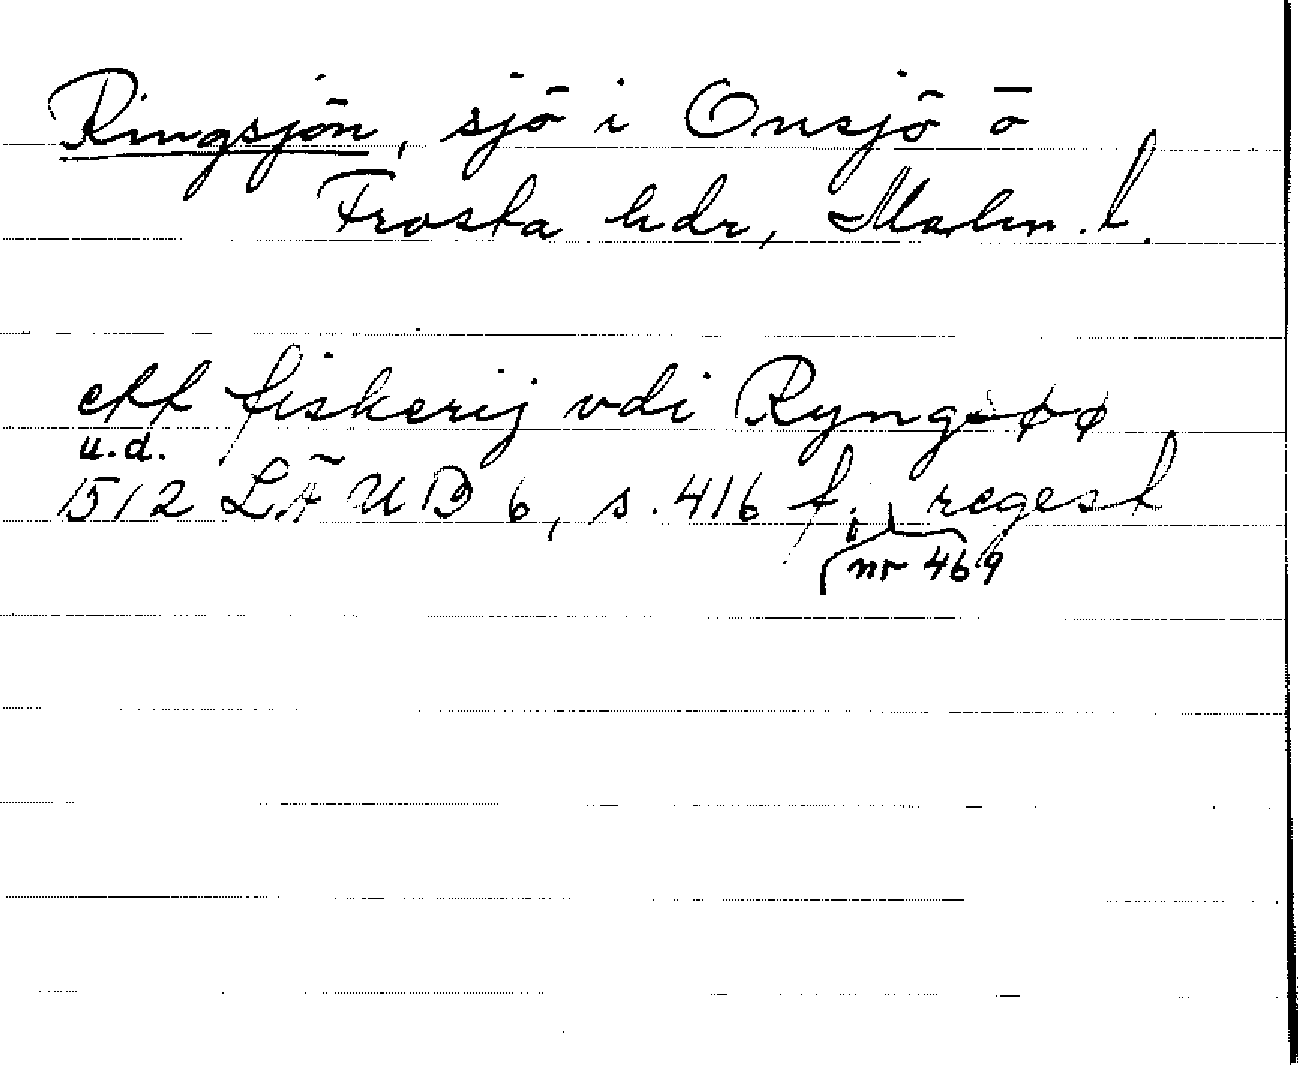 Ringsjön, sjö i Onsjö o
Frosta hdr, Malm. l.
ett fiskerij vdi Ryngsøø
u.d.
1512 LÄUB 6, s. 416 f., regest
nr 469